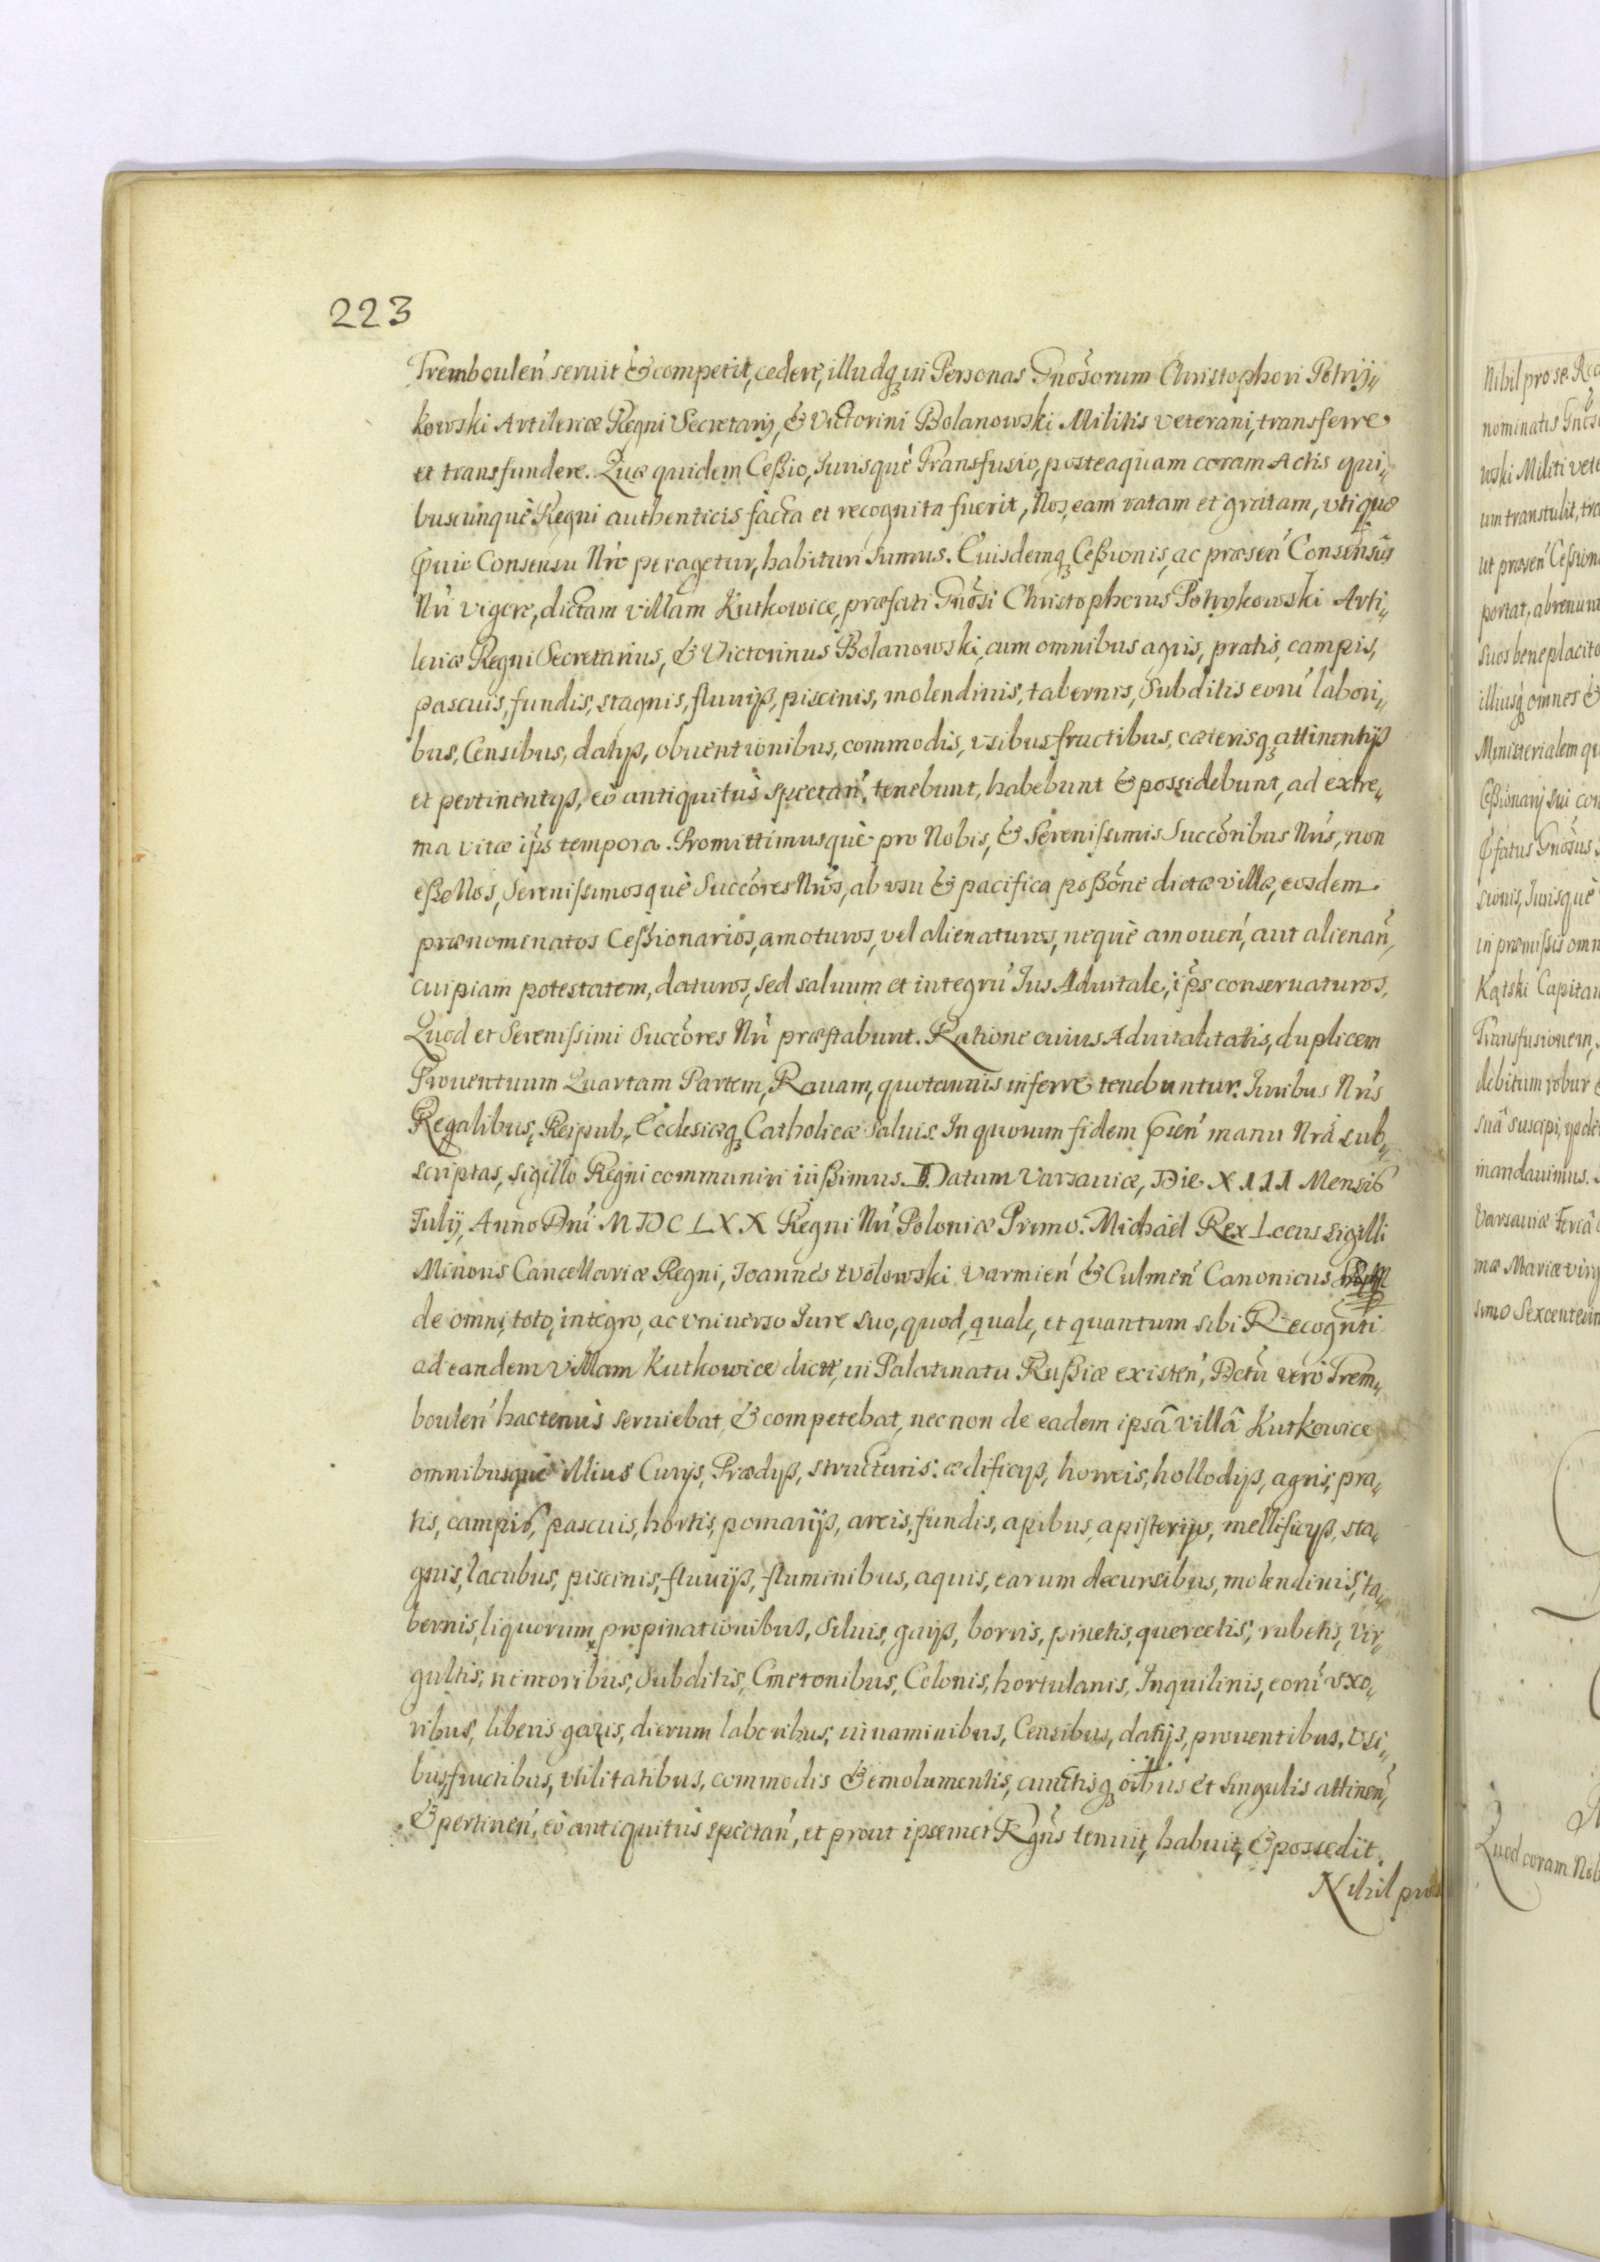 223
Tremboulen̄ seruit & competit, cedere, illudq; in Personas Gnōsorum Christophori Potrij„
kowski Artileriæ Regni Secretarij, & Victorini Bolanowski Militis veterani, transferre
et transfundere. Quæ quidem Ceßio, Iurisquè Transfusio, posteaquam coram Actis qui„
buscunquè Regni authenticis facta et recognita fuerit, Nos, eam ratam et gratam, vti quæ
Consensu Nr̄o peragetur, habituri sumus. Cuisdemq; Ceßionis, ac præsen̄ Consensûs
Nr̄i vigore, dictam villam Kutkowice, præfati Gnōsi Christophorus Potrykowski Arti„
leriæ Regni Secretarius, & Victorinus Bolanowski, cum omnibus agris, pratis, campis,
pascuis, fundis, stagnis, fluuijß, piscinis, molendinis, tabernis, Subditis eorū labori„
bus, Censibus, datijß, obuentionibus, commodis, vsibusfructibus, cæterisq; attinentijß
et pertinentijß, eò antiquitùs spectan̄, tenebunt, habebunt & possidebunt, ad extre„
ma vitæ ip̄s tempora. Promittimusquè pro Nobis, & Serenißimis Succōribus Nr̄is, non
eße Nos, Serenißimosquè Succōres Nr̄os, ab vsu & pacifica poßōne dictæ villæ, eosdem
prænominatos Ceßionarios, amoturos, vel alienaturos, nequè amouen̄, aut alienan̄,
cuipiam potestatem, daturos, sed saluum et integrū Ius Aduitale, ip̄s conseruaturos,
Quod et Serenißimi Succōres Nr̄i præstabunt. Ratione cuius Aduitalitatis, duplicem
Prouentuum Quartam Partem, Rauam, quotannis inferre tenebuntur. Iuribus Nr̄is
Regalibus, Reipub., Ecclesiæq; Catholicæ saluis. In quorum fidem p̄sen̄ manu Nrâ sub„
scriptas, sigillo Regni communiri iußimus. Datum Varsauiæ, Die XIII Mensis
Iulij, Anno Dn̄i MDCLXX Regni Nr̄i Poloniæ Primo. Michaël Rex Locus sigilli
Minoris Cancellariæ Regni, Ioannes Wolowski Varmien̄ & Culmen̄ Canonicus
de omni, toto, integro, ac vniuerso Iure suo, quod, quale, et quantum sibi Recognti
ad eandem villam Kutkowice dictt, in Palatinatu Rußiæ existen̄, Dctū verò Trem„
boulen̄ hactenùs seruiebat, & competebat, nec non de eadem ipsâ villâ Kutkowice
omnibusquè illius Curijs, Prædijß, structuris, ædificijß, horreis, hollodijß, agris, pra„
tis, campis, pascuis, hortis, pomarijß, areis, fundis, apibus, apisterijs, mellificijß, sta„
gnis, lacubus, piscinis, fluuijß, fluminibus, aquis, earum decursibus, molendinis, ta„
bernis, liquorum propinationibus, siluis, gaijß, borris, pinetis, quercetis, rubetis, vir„
gultis, nemoribus, Subditis, Cmetonibus, Colonis, hortulanis, Inquilinis, eorū vxo„
ribus, liberis gazis, dierum laboribus, iuuaminibus, Censibus, datijs, prouentibus, vsi„
busfructibus, vtilitatibus, commodis & emolumentis, cunctisq; oībus et singulis attinen̄,
& pertinen̄, eò antiquitùs spectan̄, et prout ipsemet Rgn̄s tenuit, habuit, & possedit.
Nihil pro
Nihil pro se Re
nominatis Gnōs
wski Militi vete
um transtulit, tra
ut præsen̄ Ceßion
portat, abrenun
suos beneplacito
illiusq; omnes &
Ministerialem qu
Ceßionarij sui con
fatus Gnōsus
sionis, Iurisquè
in præmißis omn
Kątski Capitan
Transfusionem,
debitum robur
suâ suscipi,
mandauimus.
Varsauiæ Feriâ
mæ Mariæ Virg
simo Sexcentesim
Quod coram Nob